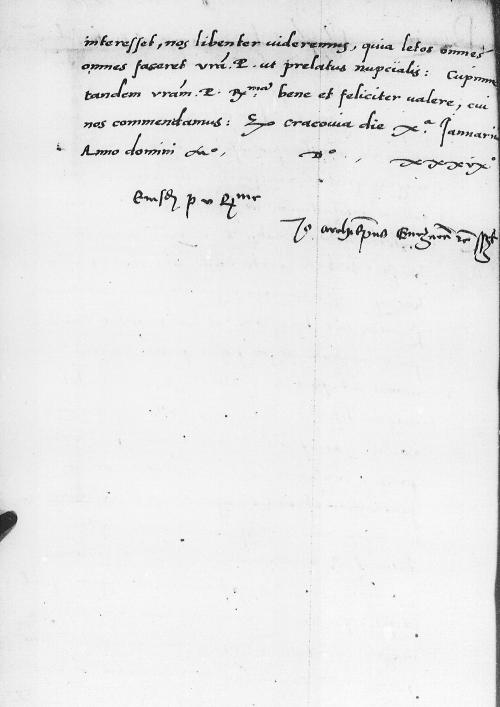 interesset, nos libenter uideremus, quia letos omnes
omnes faceret vrã. P. ut prelatus nupcialis: Cupim
tandem vrãm. P. R^ma bene et feliciter ualere, cui
nos commendamus: Ex cracouia die x^a Januarii
Anno domini M^o. D^o. xxxix^o
Eiusd p v R^me
Jo archiepus Gneznen